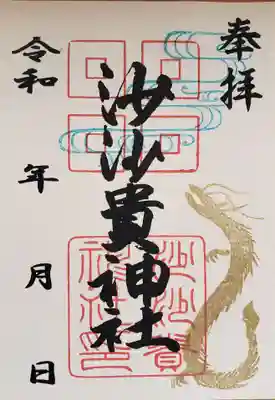 奉拝
沙沙貴神社
令和 年 月 日
沙沙貴
神社印